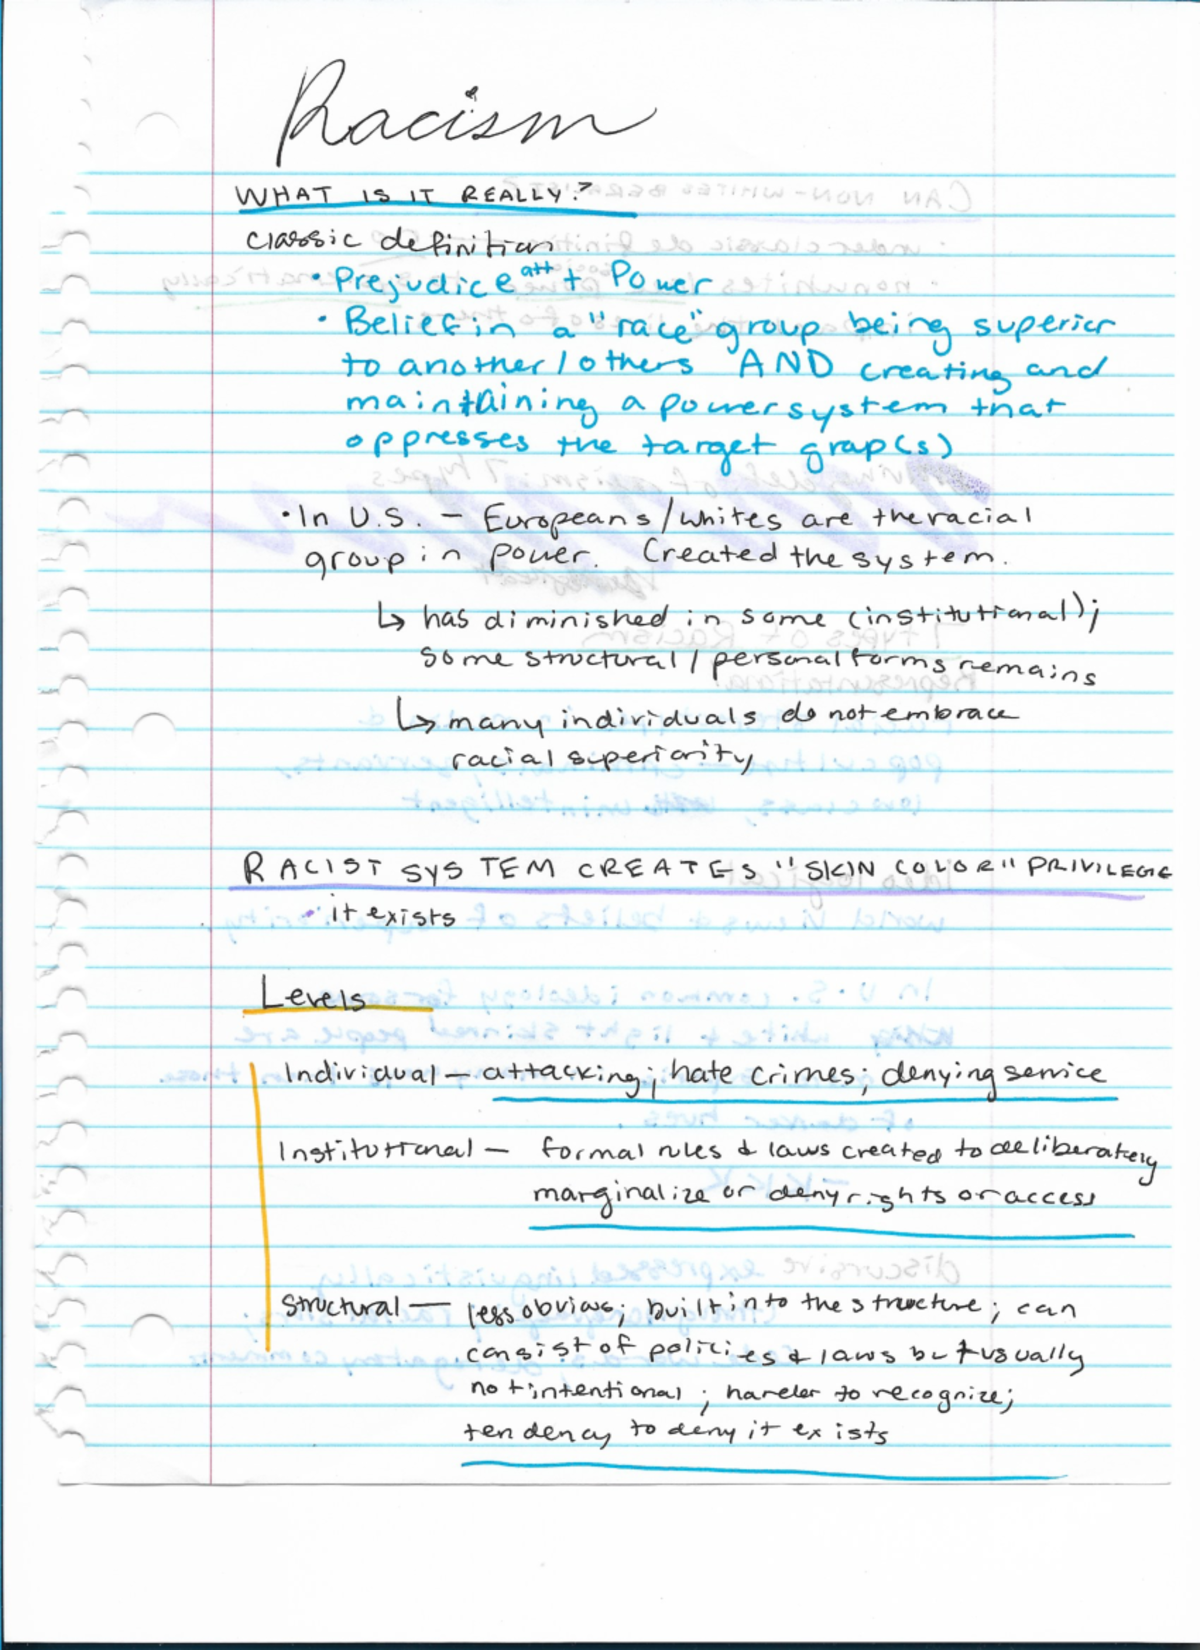 Racism
WHAT IS IT REALLY?
classic definition
• Prejudice att + Power
• Belief in a "race" group being superior
to another / others AND creating and
maintaining a power system that
oppresses the target group(s)
• In U.S. – Europeans/whites are the racial
group in power. Created the system.
↳ has diminished in some (institutional);
some structural / personal forms remains
↳ many individuals do not embrace
racial superiority
RACIST SYSTEM CREATES "SKIN COLOR" PRIVILEGE
• it exists
Levels
Individual – attacking; hate crimes; denying service
Institutional – formal rules & laws created to deliberately
marginalize or deny rights or access
Structural – less obvious; built into the structure; can
consist of policies & laws but usually
not intentional; harder to recognize;
tendency to deny it exists